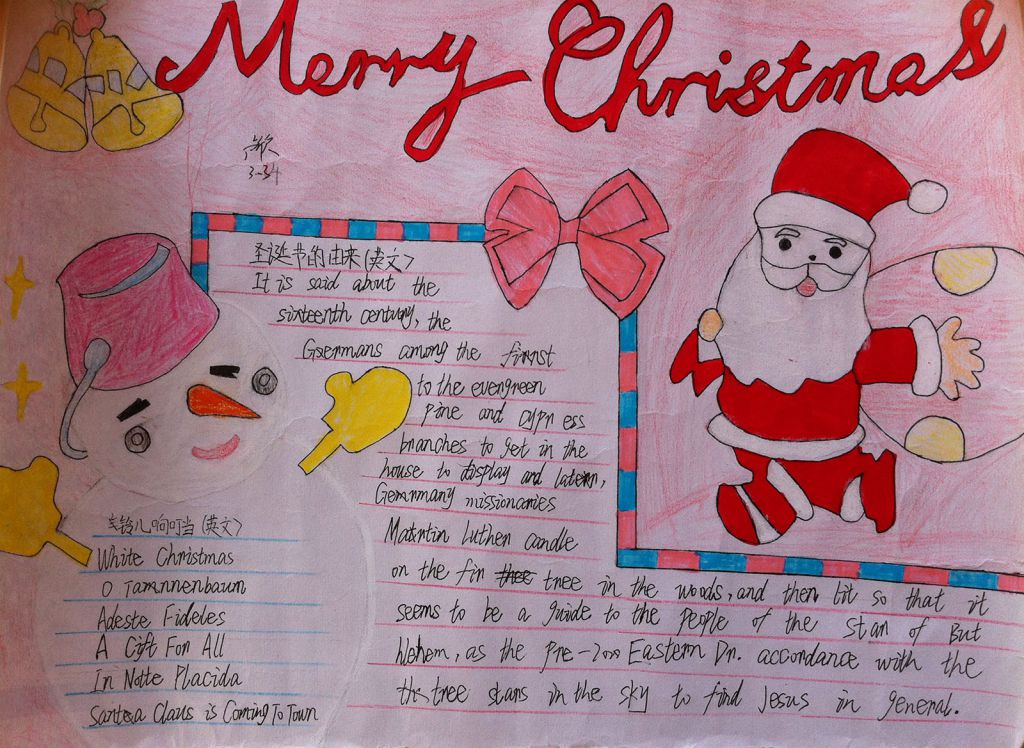 Merry Christmas
3-34
圣诞节的由来(英文)
It is said about the
sixteenth century, the
Germans among the first
to the evergreen
pine and cypress
branches to get in the
house to display and later,
Germany missionaries
Martin Luther candle
on the fir tree in the woods, and then lit so that it
seems to be a guide to the people of the Star of Bet
hlehem, as the pre-2000 Eastern Dr. accordance with the
the tree stars in the sky to find Jesus in general.
铃儿响叮当(英文)
White Christmas
O Tannnenbaum
Adeste Fideles
A Gift For All
In Notte Placida
Santa Claus is Coming To Town